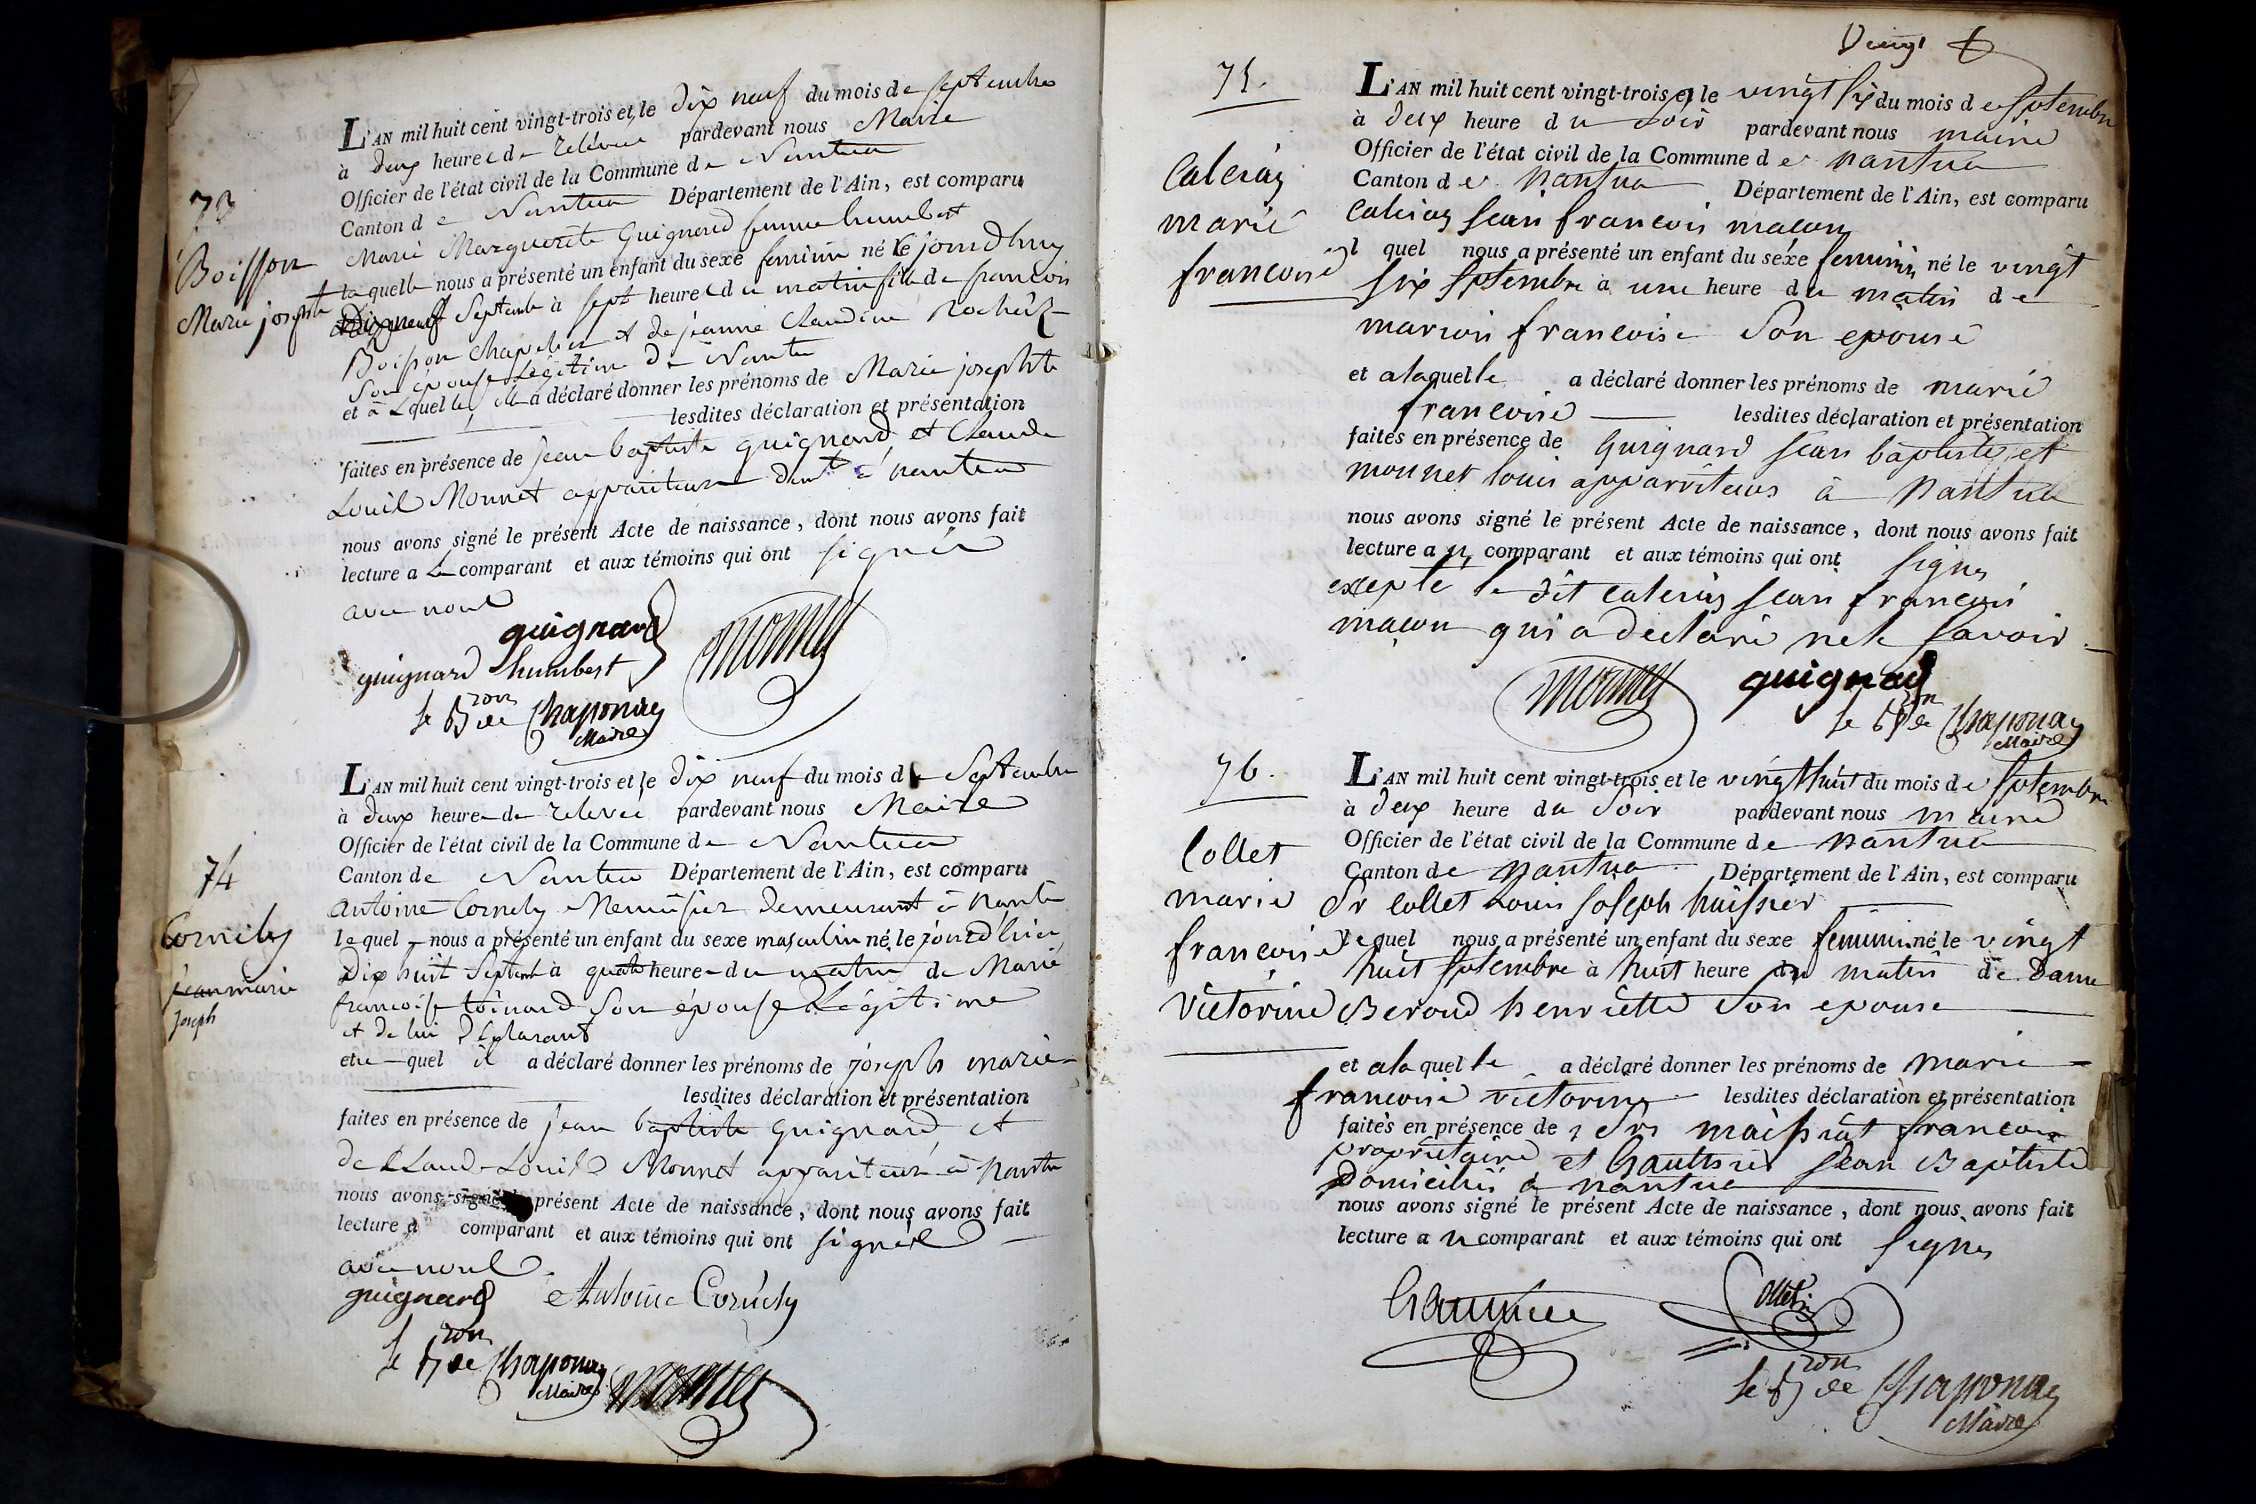 73
Boisson
Marie josephte
L'AN mil huit cent vingt-trois et le dix neuf du mois de septembre
à deux heures de relévée pardevant nous Maire
Officier de l'état civil de la Commune de Nantua
Canton de Nantua Département de l'Ain, est comparu
Marie Marguerite Guignard femme humbert
laquelle nous a présenté un enfant du sexe feminin né le jourdhuy
dix neuf Septembre à sept heures du matin fille de francois
Boisson chapelier et de jeanne Claudine
son épouse légitime de Nantua
et à laquelle elle a déclaré donner les prénoms de Marie josephte
lesdites déclaration et présentation
faites en présence de jean baptiste guignard et Claude
Louis Monnet appariteurs demt à nantua
nous avons signé le présent Acte de naissance, dont nous avons fait
lecture a la comparant et aux témoins qui ont signés
avec nous
guignard
guignard humbert
monnet
le Bon de Chaponay
Maire
74
Cornely
jean marie
joseph
L'AN mil huit cent vingt-trois et le dix neuf du mois de Septembre
à deux heures de relevée pardevant nous Maire
Officier de l'état civil de la Commune de Nantua
Canton de Nantua Département de l'Ain, est comparu
Antoine Cornely Menuisier demeurant à Nantua
lequel nous a présenté un enfant du sexe masculin né le jourdhui
Dix huit Septembre à quatre heures du matin de Marie
francoise toinard son épouse Légitime
et de lui Déclarant
et au quel il a déclaré donner les prénoms de joseph marie
lesdites déclaration et présentation
faites en présence de jean baptiste guignard et
de Claude Louis Monnet appariteurs à nantua
nous avons signé le présent Acte de naissance, dont nous avons fait
lecture a comparant et aux témoins qui ont signés
avec nous
guignard Antoine Cornely
le Bon de Chaponay
Maire
monnet
Vingt
75.
Caleiay
marie
francoise
L'AN mil huit cent vingt-trois et le vingt six du mois de septembre
à deux heure du soir pardevant nous maire
Officier de l'état civil de la Commune de nantua
Canton de Nantua Département de l'Ain, est comparu
Jean francois macon
lequel nous a présenté un enfant du sexe feminin né le vingt
six septembre à une heure du matin de
francoise son epouse
et alaquelle a déclaré donner les prénoms de marie
francoise lesdites déclaration et présentation
faites en présence de guignard Jean baptiste et
monnet louis apparriteurs à Nantua
nous avons signé le présent Acte de naissance, dont nous avons fait
lecture a u comparant et aux témoins qui ont signes
excepté le dit Jean francois
maçon qui a declaré ne le savoir
monnet guignard
le Bon de Chaponay
Maire
76.
Collet
marie
francoise
victorine
L'AN mil huit cent vingt-trois et le vingt huit du mois de septembre
à deux heure du soir pardevant nous maire
Officier de l'état civil de la Commune de nantua
Canton de Nantua Département de l'Ain, est comparu
Sr Collet Louis Joseph huissier
lequel nous a présenté un enfant du sexe feminin né le vingt
huit septembre à huit heure du matin de Dame
Beroud henriette son epouse
et alaquelle a déclaré donner les prénoms de marie
francoise victorine lesdites déclaration et présentation
faites en présence de Srs francois
propriétaire et Gauthier Jean Baptiste
Domiciliés à nantua
nous avons signé le présent Acte de naissance, dont nous avons fait
lecture a u comparant et aux témoins qui ont signés
le Bon de Chaponay
Maire